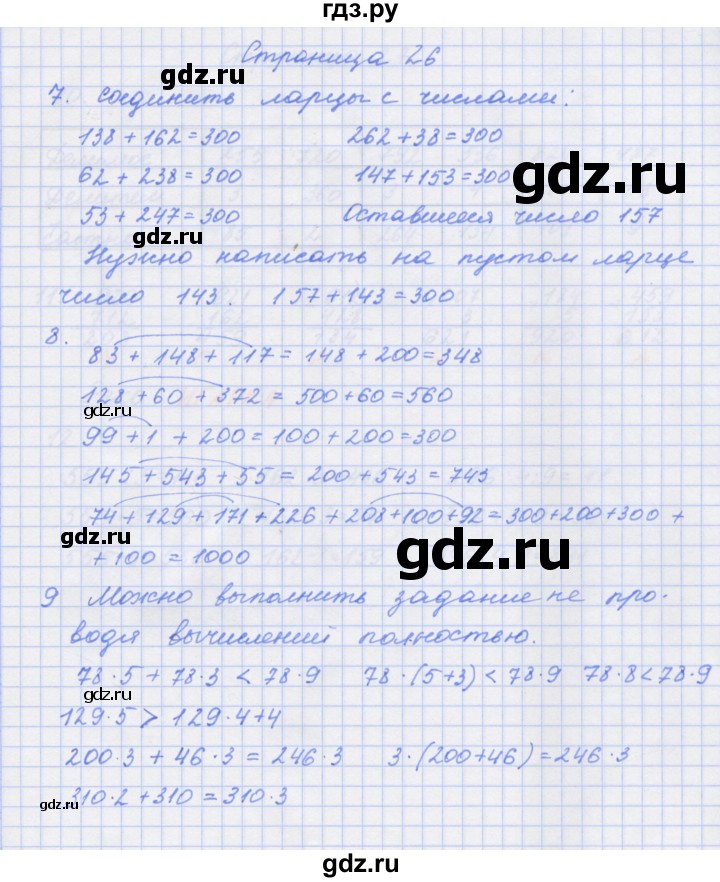 гдз.ру
Страница 26
7. Соединить ларцы с числами:
138 + 162 = 300    262 + 38 = 300
62 + 238 = 300    147 + 153 = 300
53 + 247 = 300    Оставшееся число 157
Нужно написать на пустом ларце
число 143. 157 + 143 = 300
8.
83 + 148 + 117 = 148 + 200 = 348
128 + 60 + 372 = 500 + 60 = 560
99 + 1 + 200 = 100 + 200 = 300
145 + 543 + 55 = 200 + 543 = 743
74 + 129 + 171 + 226 + 208 + 100 + 92 = 300 + 200 + 300 +
+ 100 = 1000
9 Можно выполнить задание не про-
водя вычислений полностью.
78 · 5 + 78 · 3 < 78 · 9    78 · (5+3) < 78 · 9    78 · 8 < 78 · 9
129 · 5 > 129 · 4 + 4
200 · 3 + 46 · 3 = 246 · 3    3 · (200 + 46) = 246 · 3
310 · 2 + 310 = 310 · 3
gdz.ru
gdz.ru
gdz.ru
gdz.ru
gdz.ru
gdz.ru
gdz.ru
gdz.ru
gdz.ru
gdz.ru